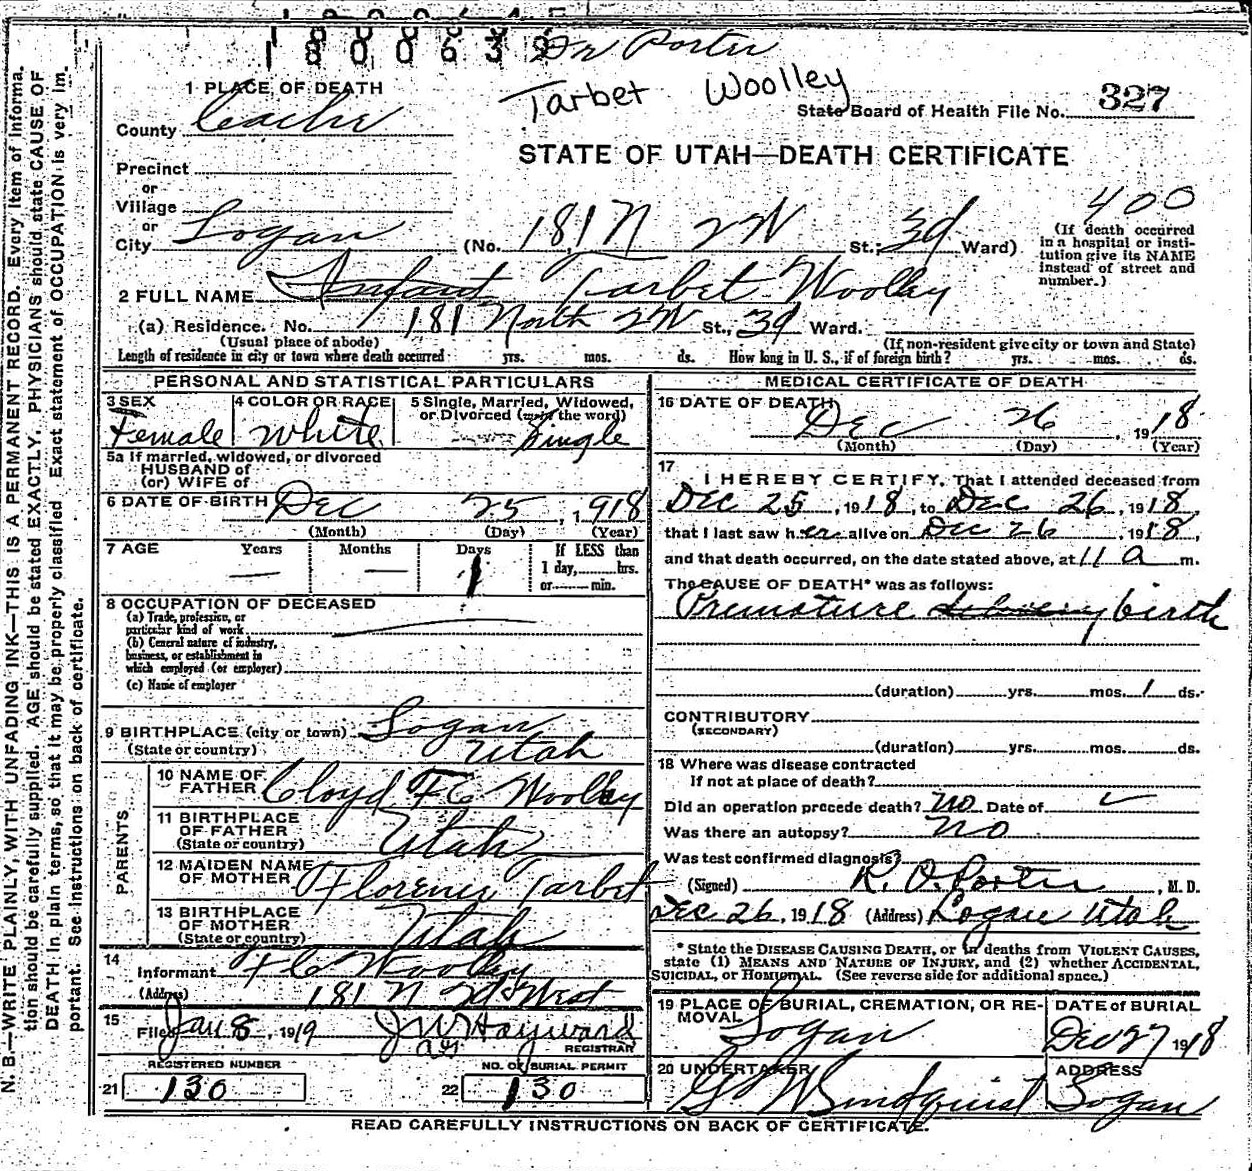 1800639
Dr Porter
Tarbet Woolley
1 PLACE OF DEATH
County Cache
State Board of Health File No. 327
STATE OF UTAH—DEATH CERTIFICATE
Precinct
or
Village
or
City Logan (No. 181 N 2W St.; 3d Ward)
400
(If death occurred in a hospital or institution give its NAME instead of street and number.)
2 FULL NAME Infant Tarbet Woolley
(a) Residence. No. 181 North 2W St., 3d Ward.
(Usual place of abode) (If non-resident give city or town and State)
Length of residence in city or town where death occurred yrs. mos. ds. How long in U. S., if of foreign birth? yrs. mos. ds.
PERSONAL AND STATISTICAL PARTICULARS
3 SEX 4 COLOR OR RACE 5 Single, Married, Widowed, or Divorced (write the word)
Female White Single
5a If married, widowed, or divorced
HUSBAND of
(or) WIFE of
6 DATE OF BIRTH Dec 25, 1918
(Month) (Day) (Year)
7 AGE Years Months Days If LESS than
— — 1 1 day, hrs.
or min.
8 OCCUPATION OF DECEASED
(a) Trade, profession, or
particular kind of work
(b) General nature of industry,
business, or establishment in
which employed (or employer)
(c) Name of employer
9 BIRTHPLACE (city or town) Logan
(State or country) Utah
PARENTS
10 NAME OF FATHER Cloyd F C Woolley
11 BIRTHPLACE OF FATHER
(State or country) Utah
12 MAIDEN NAME OF MOTHER Florence Tarbet
13 BIRTHPLACE OF MOTHER
(State or country) Utah
14
Informant F C Woolley
(Address) 181 N 2d West
15
Filed Jan 8, 1919 J W Hayward
REGISTRAR
REGISTERED NUMBER NO. OF BURIAL PERMIT
21 130 22 130
MEDICAL CERTIFICATE OF DEATH
16 DATE OF DEATH
Dec 26, 1918
(Month) (Day) (Year)
17
I HEREBY CERTIFY, That I attended deceased from
Dec 25, 1918, to Dec 26, 1918,
that I last saw her alive on Dec 26, 1918,
and that death occurred, on the date stated above, at 11 a m.
The CAUSE OF DEATH* was as follows:
Premature birth
(duration) yrs. mos. 1 ds.
CONTRIBUTORY
(SECONDARY)
(duration) yrs. mos. ds.
18 Where was disease contracted
If not at place of death?
Did an operation precede death? no Date of
Was there an autopsy? no
Was test confirmed diagnosis?
(Signed) R. O. Porter, M. D.
Dec 26, 1918 (Address) Logan Utah
* State the DISEASE CAUSING DEATH, or in deaths from VIOLENT CAUSES,
state (1) MEANS AND NATURE OF INJURY, and (2) whether ACCIDENTAL,
SUICIDAL, or HOMICIDAL. (See reverse side for additional space.)
19 PLACE OF BURIAL, CREMATION, OR REMOVAL DATE OF BURIAL
Logan Dec 27 1918
20 UNDERTAKER ADDRESS
G W Lindquist Logan
READ CAREFULLY INSTRUCTIONS ON BACK OF CERTIFICATE.
N. B.—WRITE PLAINLY, WITH UNFADING INK—THIS IS A PERMANENT RECORD. Every item of informa-
tion should be carefully supplied. AGE should be stated EXACTLY. PHYSICIANS should state CAUSE OF
DEATH in plain terms, so that it may be properly classified. Exact statement of OCCUPATION is very im-
portant. See instructions on back of certificate.